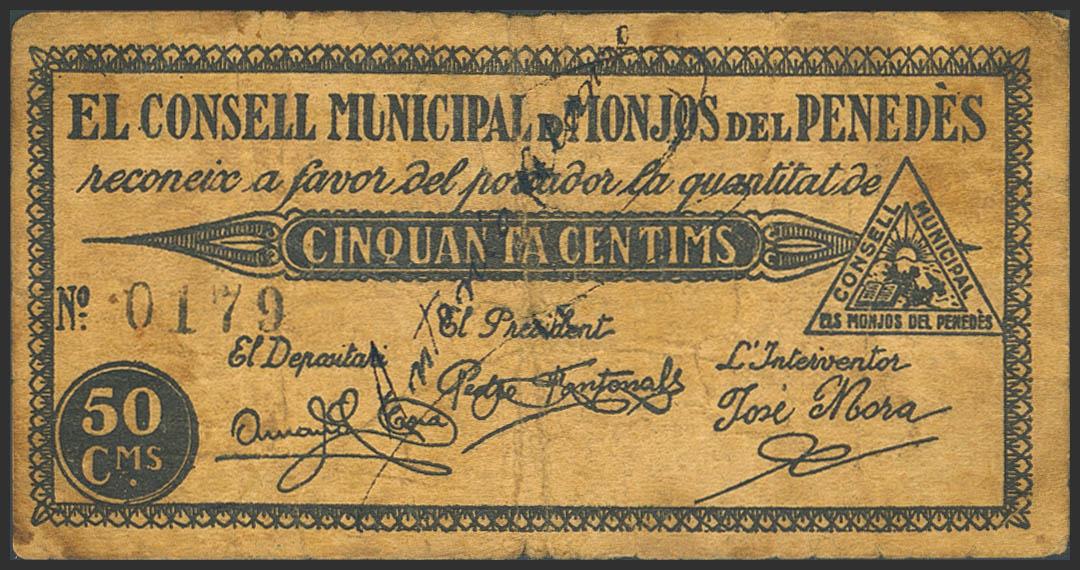 EL CONSELL MUNICIPAL DE MONJOS DEL PENEDÈS
reconeix a favor del portador la quantitat de
CINQUANTA CENTIMS
CONSELL MUNICIPAL
ELS MONJOS DEL PENEDÈS
Nº: 0179
El Depositari
El President
L'Interventor
Pedro Fontanals
José Mora
50
CMS.